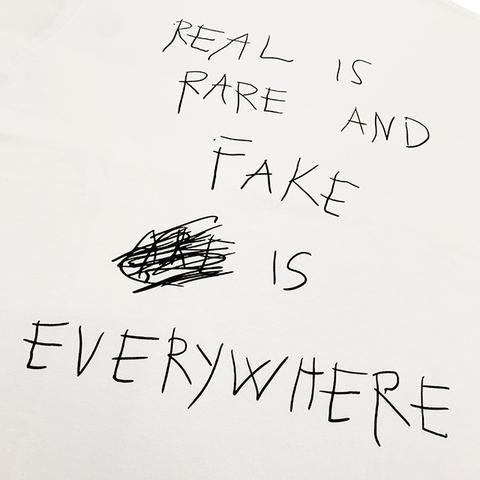 REAL IS
RARE AND
FAKE
IS
EVERYWHERE